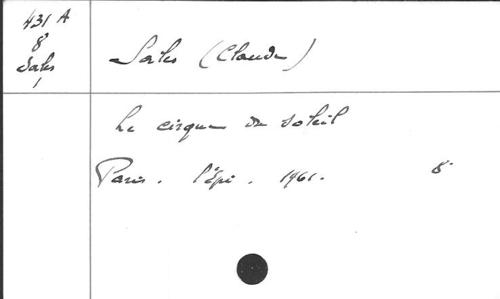 431 A
8
Sales
1
Sales (Claude)
Le cirque du soleil
Paris. l'Épi. 1961. 8°